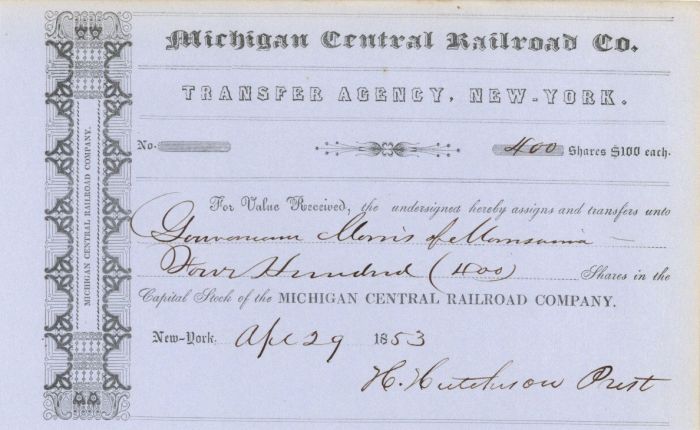 Michigan Central Railroad Co.
TRANSFER AGENCY, NEW-YORK.
No.
400 Shares $100 each.
MICHIGAN CENTRAL RAILROAD COMPANY.
For Value Received, the undersigned hereby assigns and transfers unto
Gouverneur Morris of Morrisania
Four Hundred (400) Shares in the
Capital Stock of the MICHIGAN CENTRAL RAILROAD COMPANY.
New-York. Apl 29 1853
H. Hutchinson Prest